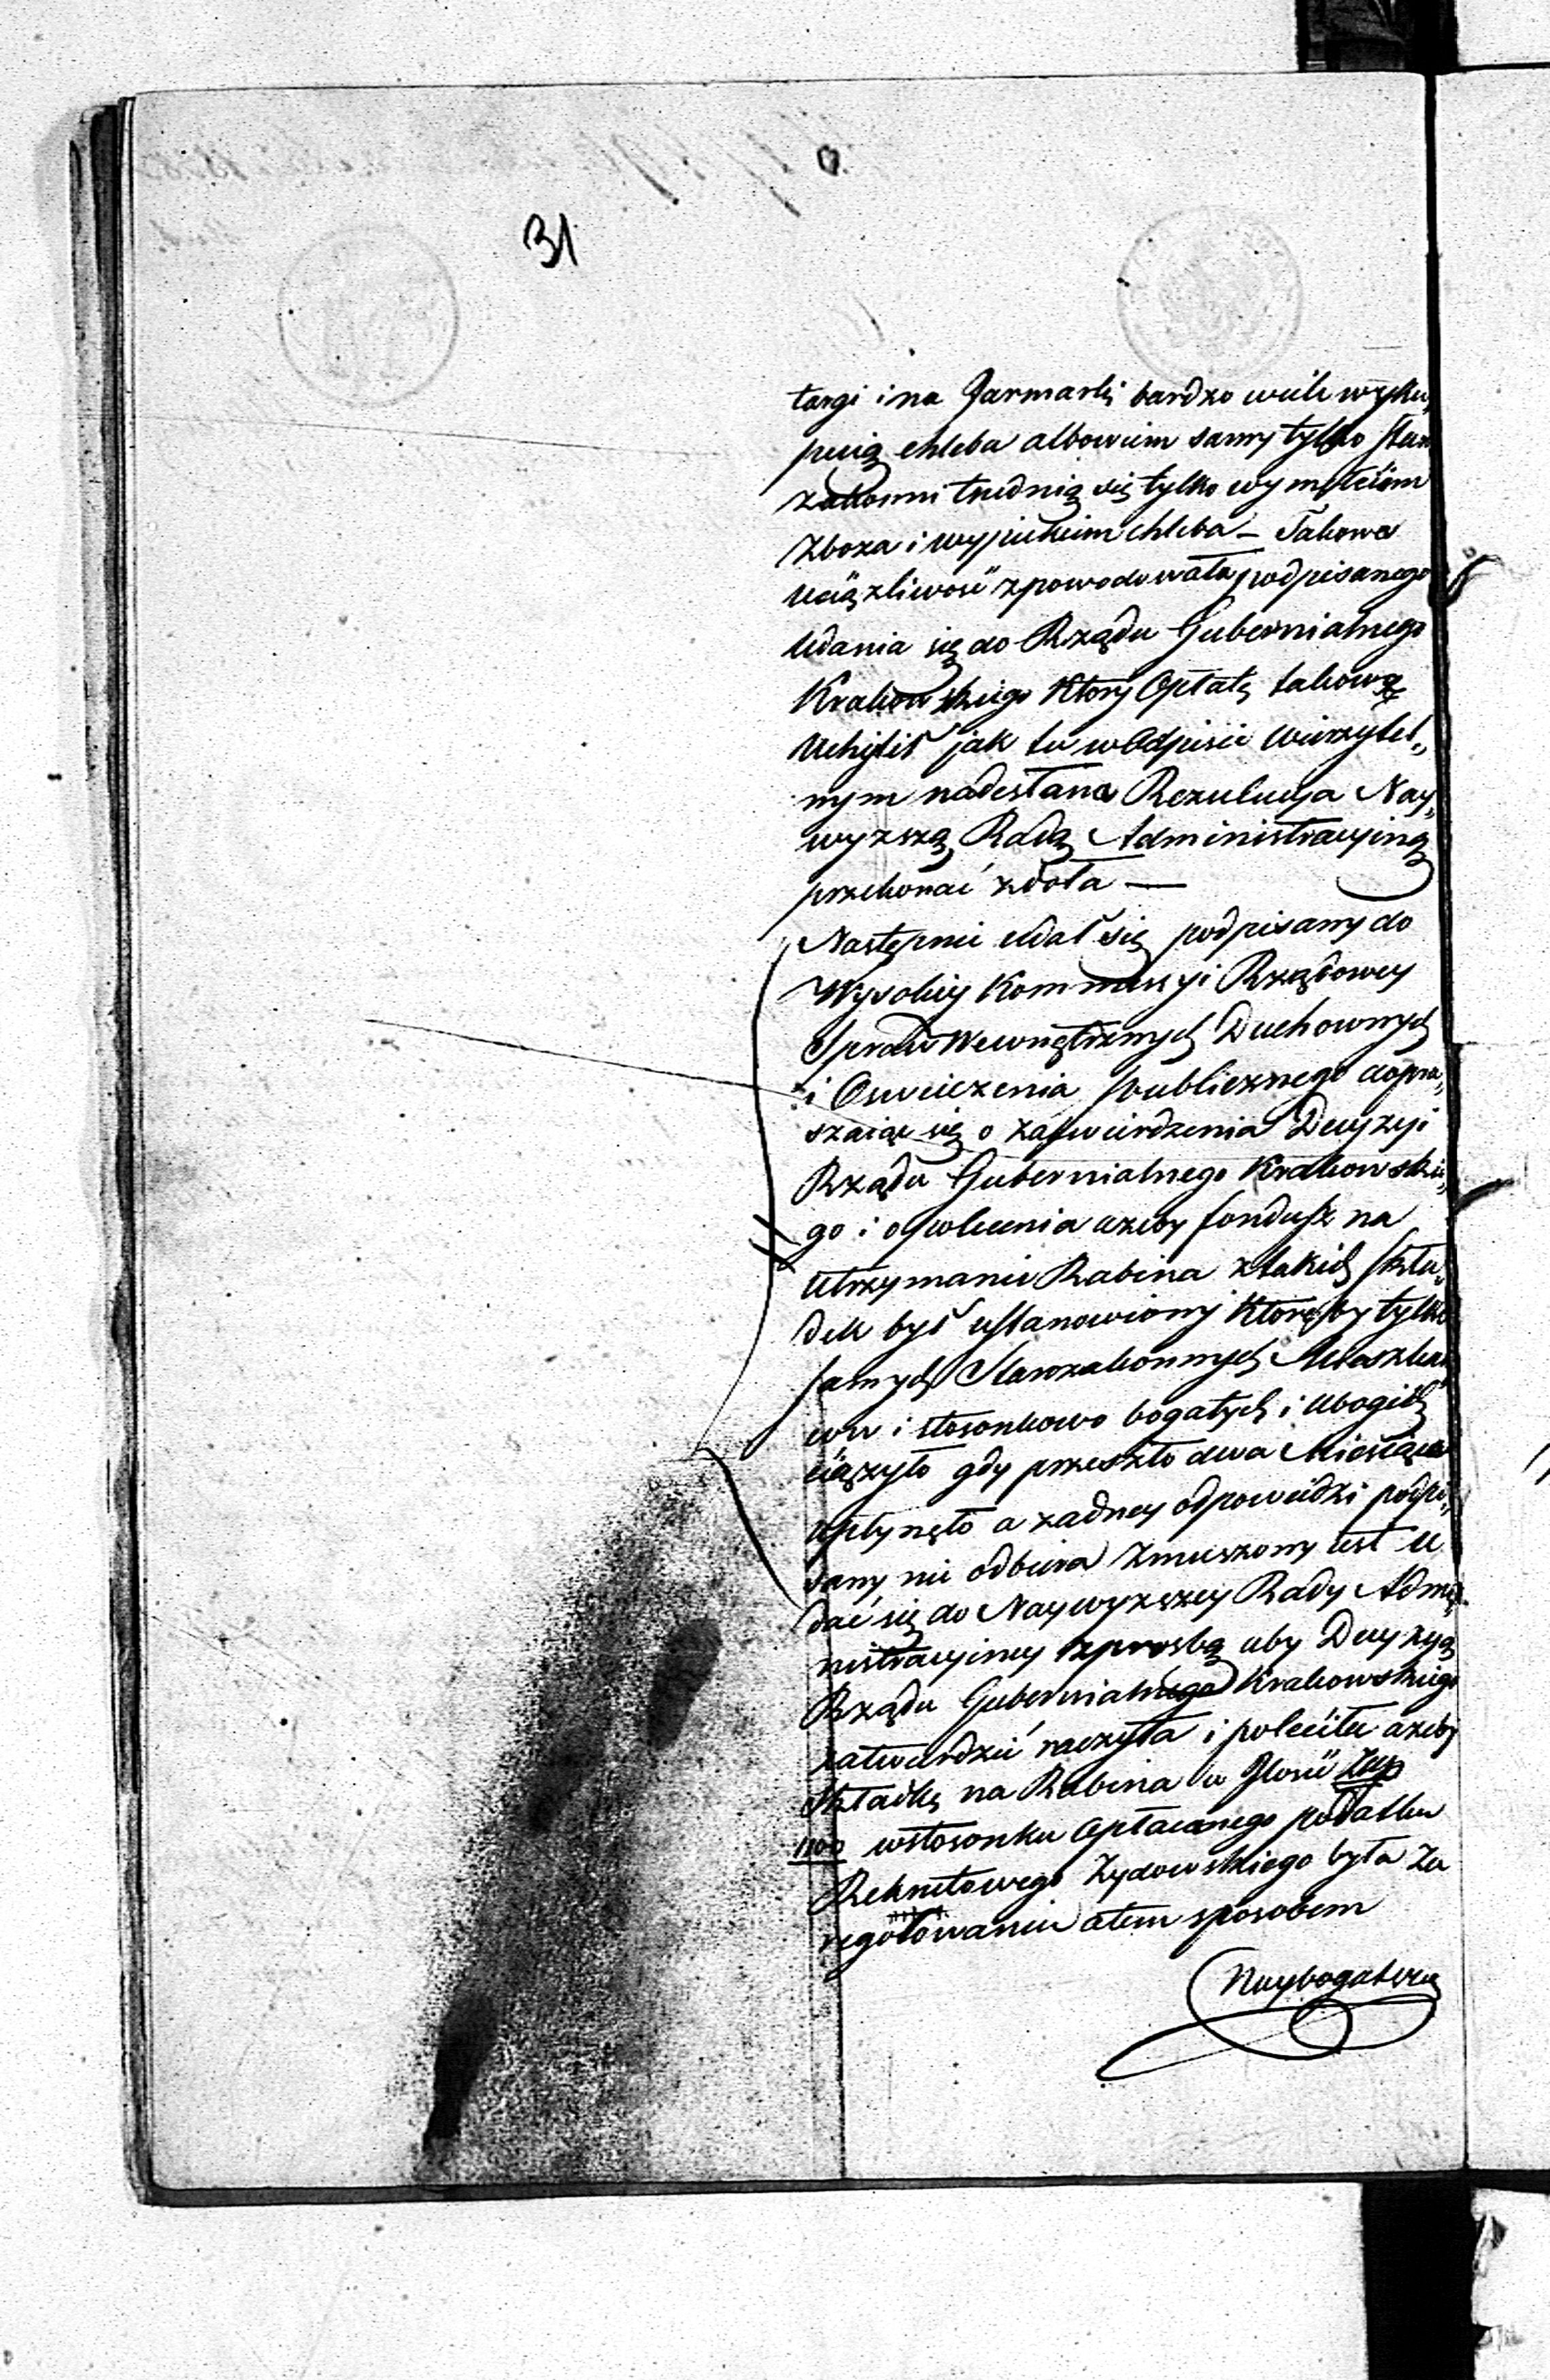 31
targi i na Jarmarki bardzo wiele wyku„
puią chleba albowiem samy tylko star
zakonni trudnią się tylko wymełciem
Zboza i wypiekiem chleba — Takowa
uciązliwość zpowodowała podpisanego
udania się do Rządu Gubernialnego
Krakowskiego Ktory Opłatę takową
Uchylił jak tu w Odpisie wierzytel„
nym nadesłana Rezulucya Nay„
wyzszą Radę Administracyiną
przekonać zdoła —
Następnie udał się podpisany do
Wysokiey Kommissyi Rządowey
Spraw Wewnętrznych Duchownych
i Oswiecenia Publicznego dopra„
szaiąc się o zatwierdzenia Decyzyi
Rządu Gubernialnego Krakowskie„
go i o polecenia azeby fondusz na
Utrzymanie Rabina z takich skła„
dek był ustanowiony Ktoręby tylko
samych Starozakonnych Mieszkan
ców i stosonkowo bogatych i ubogich
ciązyło gdy przeszło dwa Miesiąca
upłynęło a zadney odpowiedzi podpi„
sany nie odbiera Zmuszony iest u
dać się do Naywyzszey Rady Admi
nistracyiney z prosbą aby Decyzyą
Rządu Gubernialnego Krakowskiego
zatwierdzić raczyła i poleciła azeby
Składkę na Rabina w Ilosci Złp
1100 w stosonku Opłacanego podatku
Rekrutowego Zydowskiego była Za
regolowaniu a tem sposobem
Naybogatsza